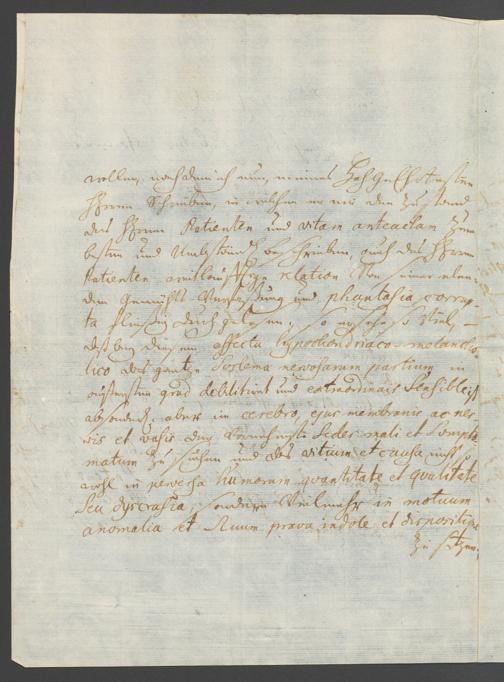 wollen, nachdem ich nun, meines Hochgeehrtesten
Herrn Schreiben, in welchem er mir den Zustand
des Herrn Patienten und vitam anteactam zum
besten und beschrieben, auch des Herrn
Patienten relation von seiner elen-
den Gemüths und phantasia corrup-
ta fleißig durchgelesen; so ersehe so viel,
daß bey diesem affectu hypochondriaco-melancho-
lico das gantze Systema nervosarum partium in
grad debilitirt und extraordinair sensible ist
absonderlich aber im cerebro, ejus membranis ac ner-
vis et vasis die vornehmste Sedes mali et sympto-
matum zu suchen und das vitium et causa nicht so
wohl in perversa humorum quantitate et qualitate
seu dyscrasia, sondern vielmehr in motuum
anomalia et prava indole et dispositione
zu setzen;